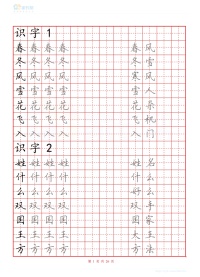 识字 1
春 春 春 春 春 风
冬 冬 冬 冬 冬 雪
风 风 风 风 寒 风
雪 雪 雪 雪 雪 人
花 花 花 花 花 朵
飞 飞 飞 飞 飞 机
入 入 入 入 入 门
识字 2
姓 姓 姓 姓 姓 名
什 什 什 什 什 么
么 么 么 么 么
双 双 双 双 双 手
国 国 国 国 国 家
王 王 王 王 王
方 方 方 方 方 法